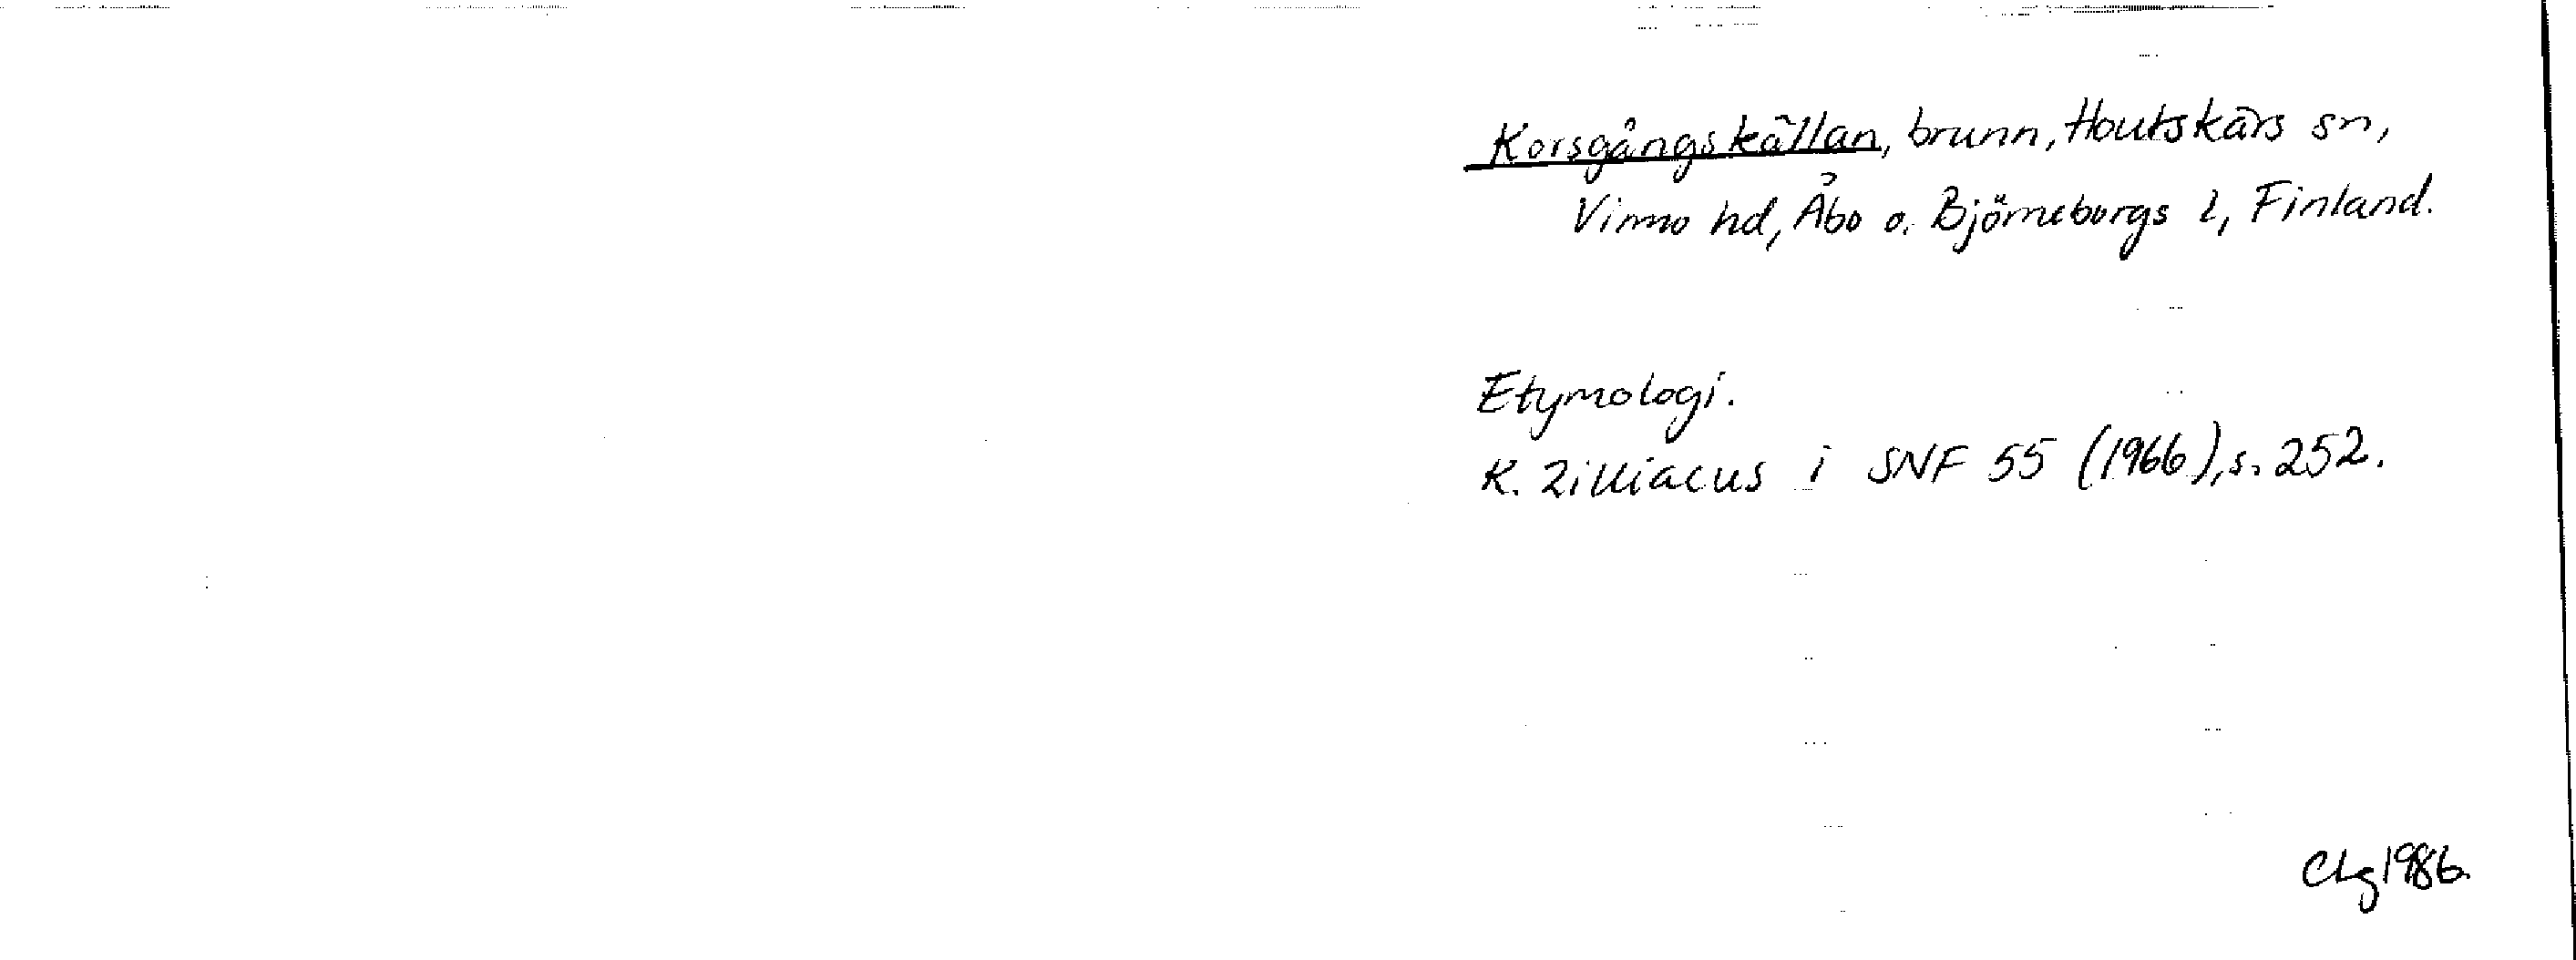 Korsgångskällan, brunn, Houtskärs sn,
Virmo hd, Åbo o. Björneborgs l, Finland.
Etymologi.
K. Zilliacus i SNF 55 (1966), s. 252.
CLg 1986